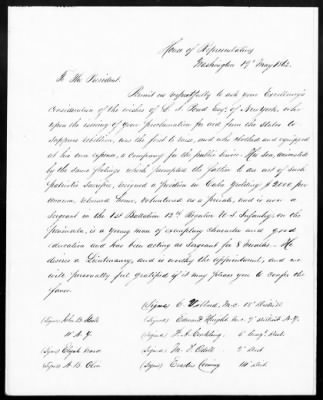 House of Representatives
Washington 19th May 1862.
To The President.
Permit us respectfully to ask your Excellency's
consideration of the wishes of Esq. of New York, who
upon the issuing of your proclamation for and from the states to
suppress rebellion, was the first to raise, and who clothed and equipped
at his own expense, a company for the public service. His son, animated
by the same feelings which prompted the father to an act of such
patriotic sacrifice, resigned a position in Cuba yielding $2000 per
annum, returned home, volunteered as a private, and is now a
Sergeant in the 1st Battalion 12th Regular U S Infantry, on the
Peninsula, is a young man of exemplary character and good
education and has been acting as Sergeant for 8 months. He
desires a Lieutenancy, and is worthy the appointment, and we
will personally feel gratified if it may please you to confer the
favor.
(Signed) M.C. District
(Signed) John B. Steele (Signed) Edward Haight M.C. 9th District N.Y.
(Signed) F. A. Conkling
(Signed) Elijah Ward (Signed) M. F. Odell
(Signed) A. B. Olin (Signed) Erastus Corning 14th Dist